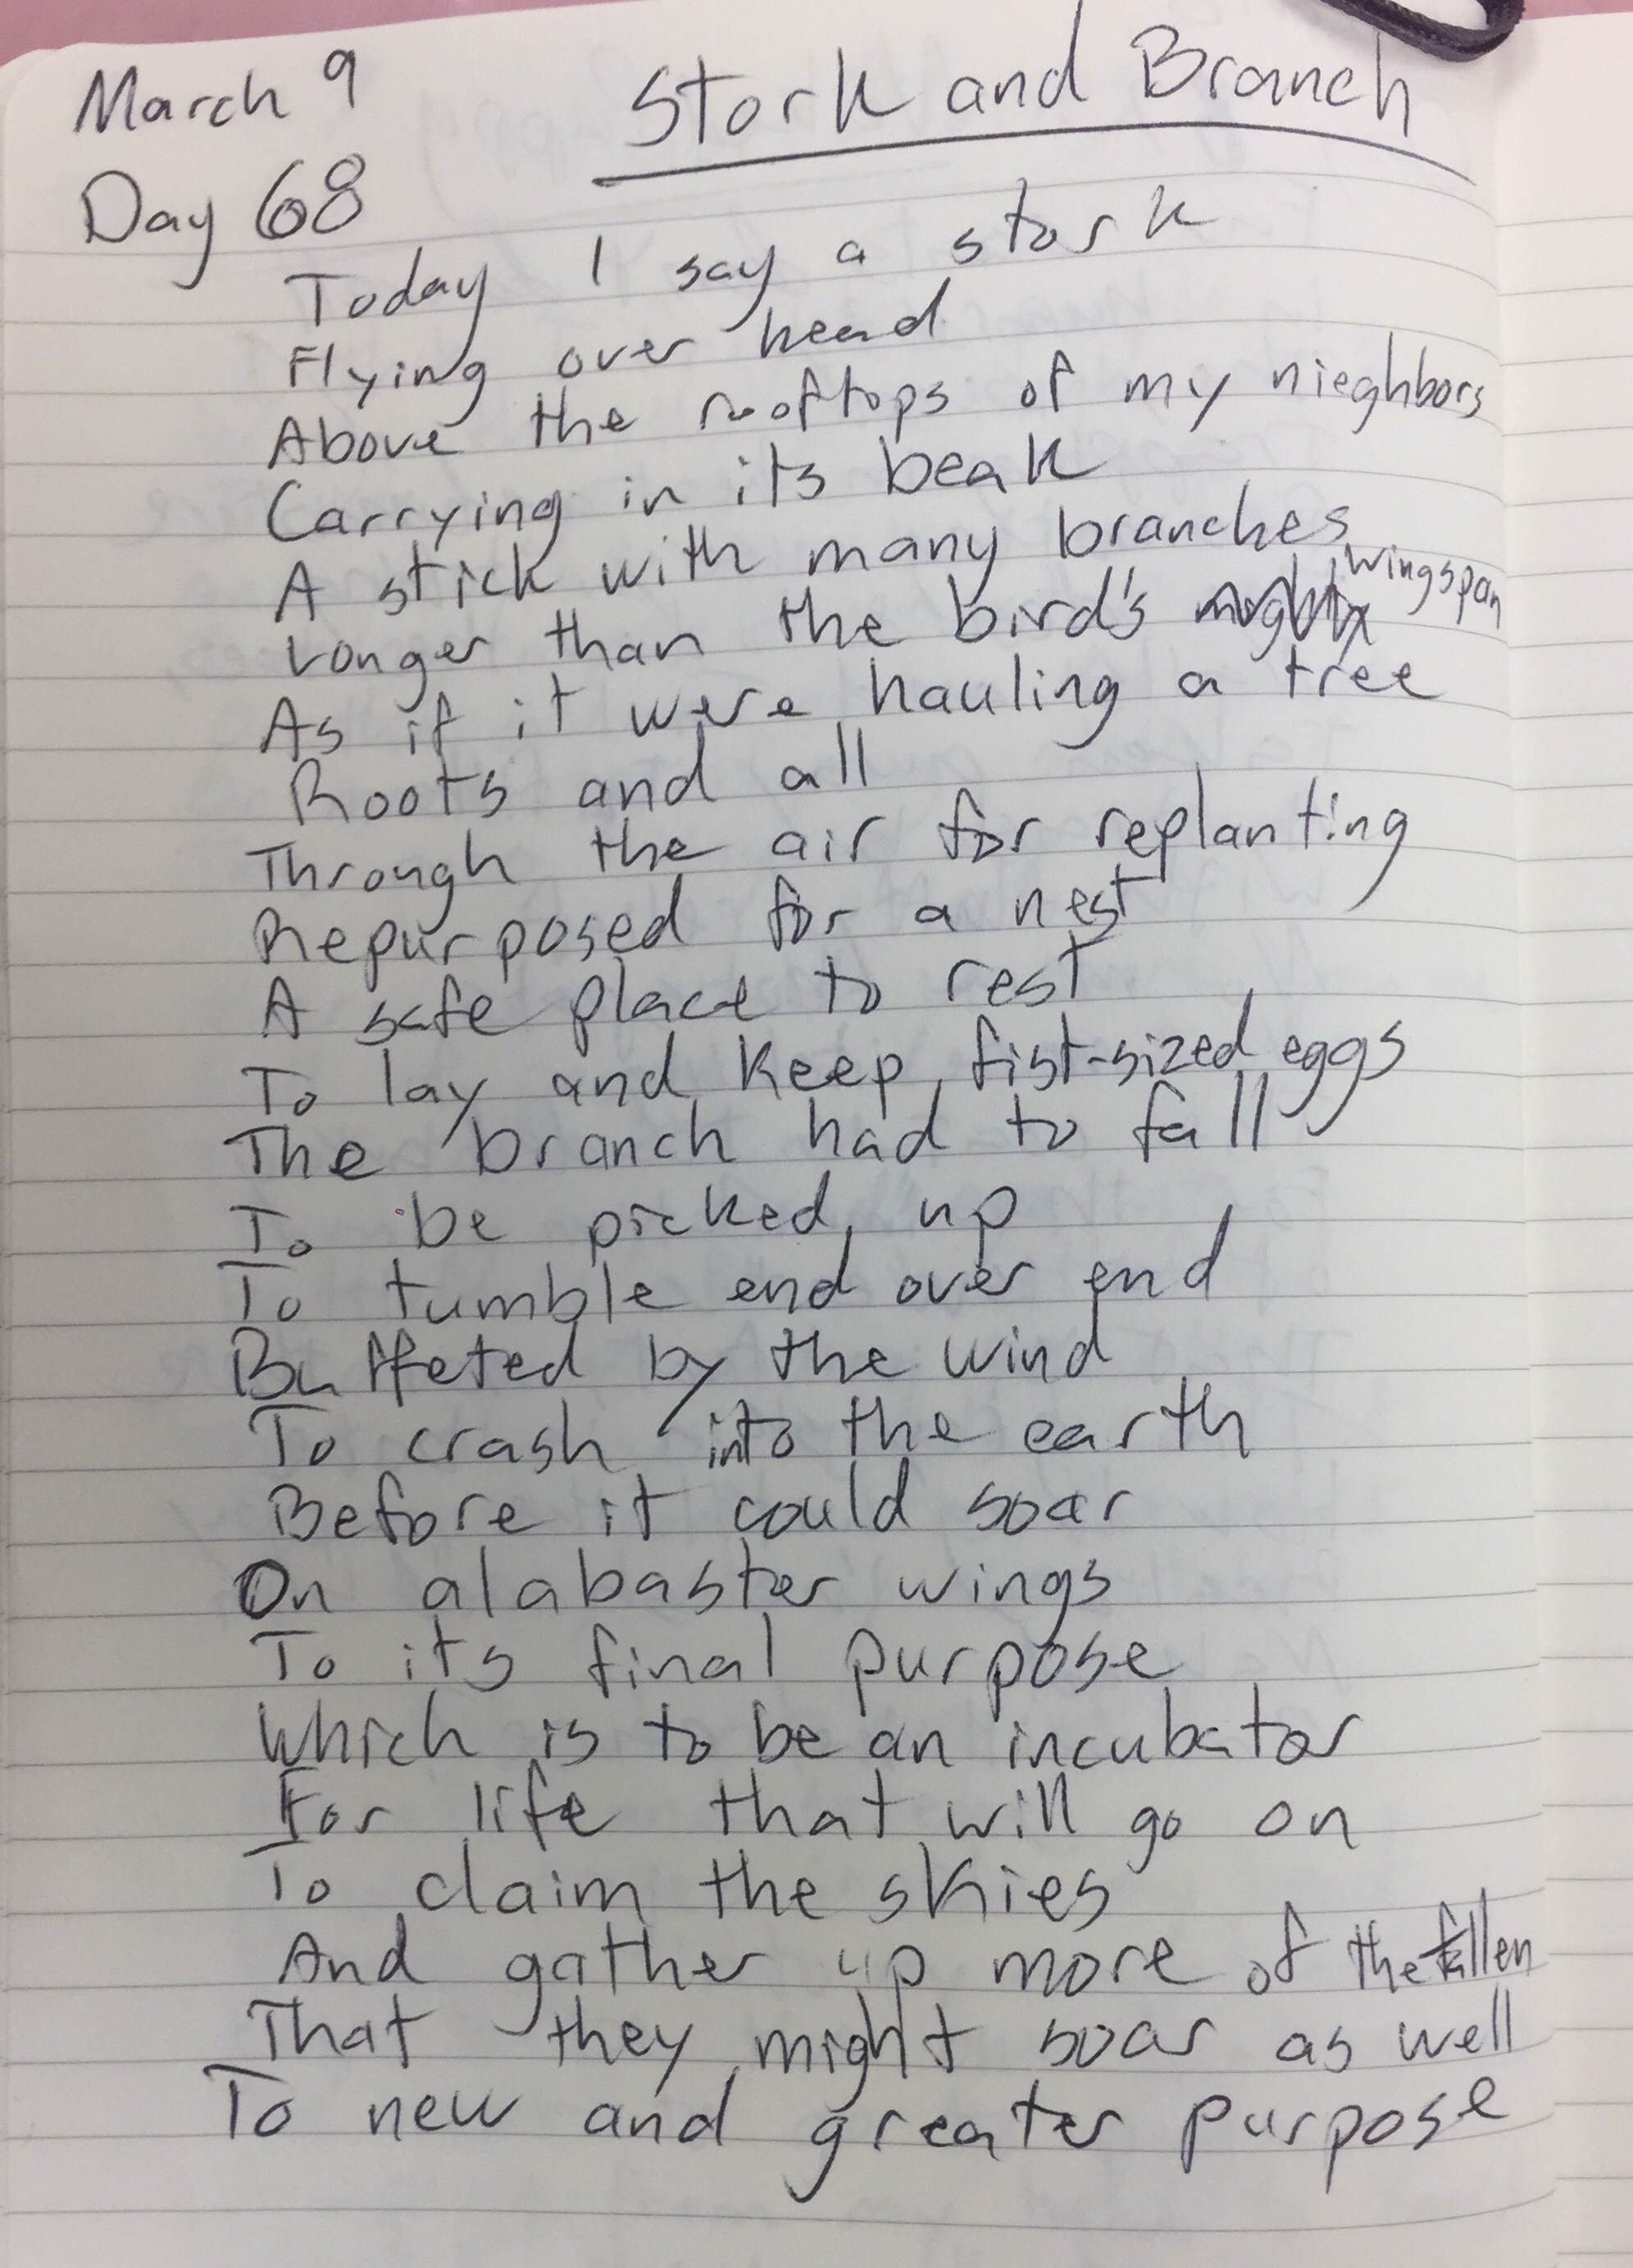 March 9
Stork and Branch
Day 68
Today I say a stork
Flying over head
Above the rooftops of my nieghbors
Carrying in its beak
A stick with many branches
Longer than the bird's wingspan
As if it were hauling a tree
Roots and all
Through the air for replanting
Repurposed for a nest
A safe place to rest
To lay and keep fist-sized eggs
The branch had to fall
To be picked up
To tumble end over end
Buffeted by the wind
To crash into the earth
Before it could soar
On alabaster wings
To its final purpose
Which is to be an incubator
For life that will go on
To claim the skies
And gather up more of the fallen
That they might soar as well
To new and greater purpose